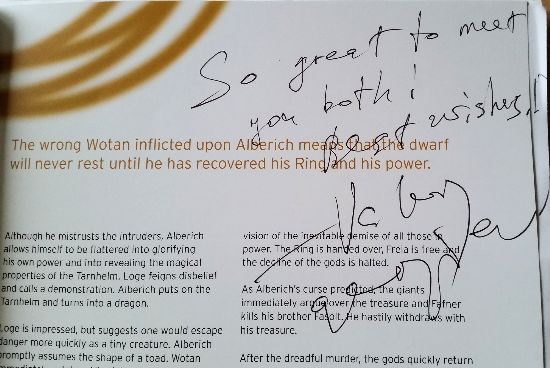 So great to meet
you both!
Best wishes,
The wrong Wotan inflicted upon Alberich means that the dwarf
will never rest until he has recovered his Ring and his power.
Although he mistrusts the intruders, Alberich
allows himself to be flattered into glorifying
his own power and into revealing the magical
properties of the Tarnhelm. Loge feigns disbelief
and calls a demonstration. Alberich puts on the
Tarnhelm and turns into a dragon.
Loge is impressed, but suggests one would escape
danger more quickly as a tiny creature. Alberich
promptly assumes the shape of a toad. Wotan
vision of the inevitable demise of all those in
power. The Ring is handed over, Freia is free and
the decline of the gods is halted.
As Alberich's curse predicted, the giants
immediately argue over the treasure and Fafner
kills his brother Fasolt. He hastily withdraws with
his treasure.
After the dreadful murder, the gods quickly return